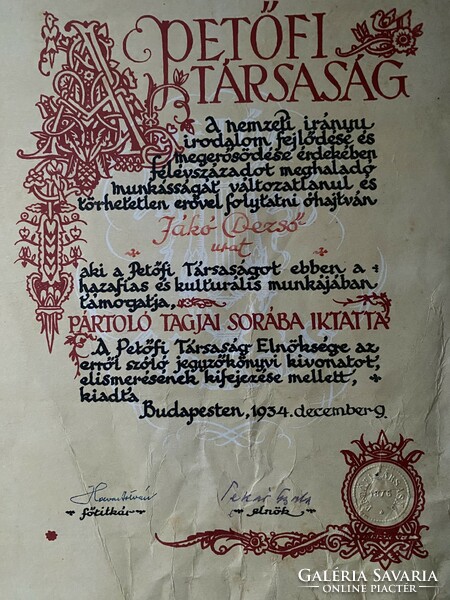 A PETŐFI
TÁRSASÁG
A nemzeti irányu
irodalom fejlődése és
megerősödése érdekében
félévszázadot meghaladó
munkásságát változatlanul és
törhetetlen erővel folytatni óhajtván
Jákó Dezső
urat
aki a Petőfi Társaságot ebben a
hazafias és kulturális munkájában
támogatja,
PÁRTOLÓ TAGJAI SORÁBA IKTATTA
A Petőfi Társaság Elnöksége az
erről szóló jegyzőkönyvi kivonatot,
elismerésének kifejezése mellett,
kiadta
Budapesten, 1934. december 9.
főtitkár
elnök
1876
GALÉRIA SAVARIA
ONLINE PIACTÉR